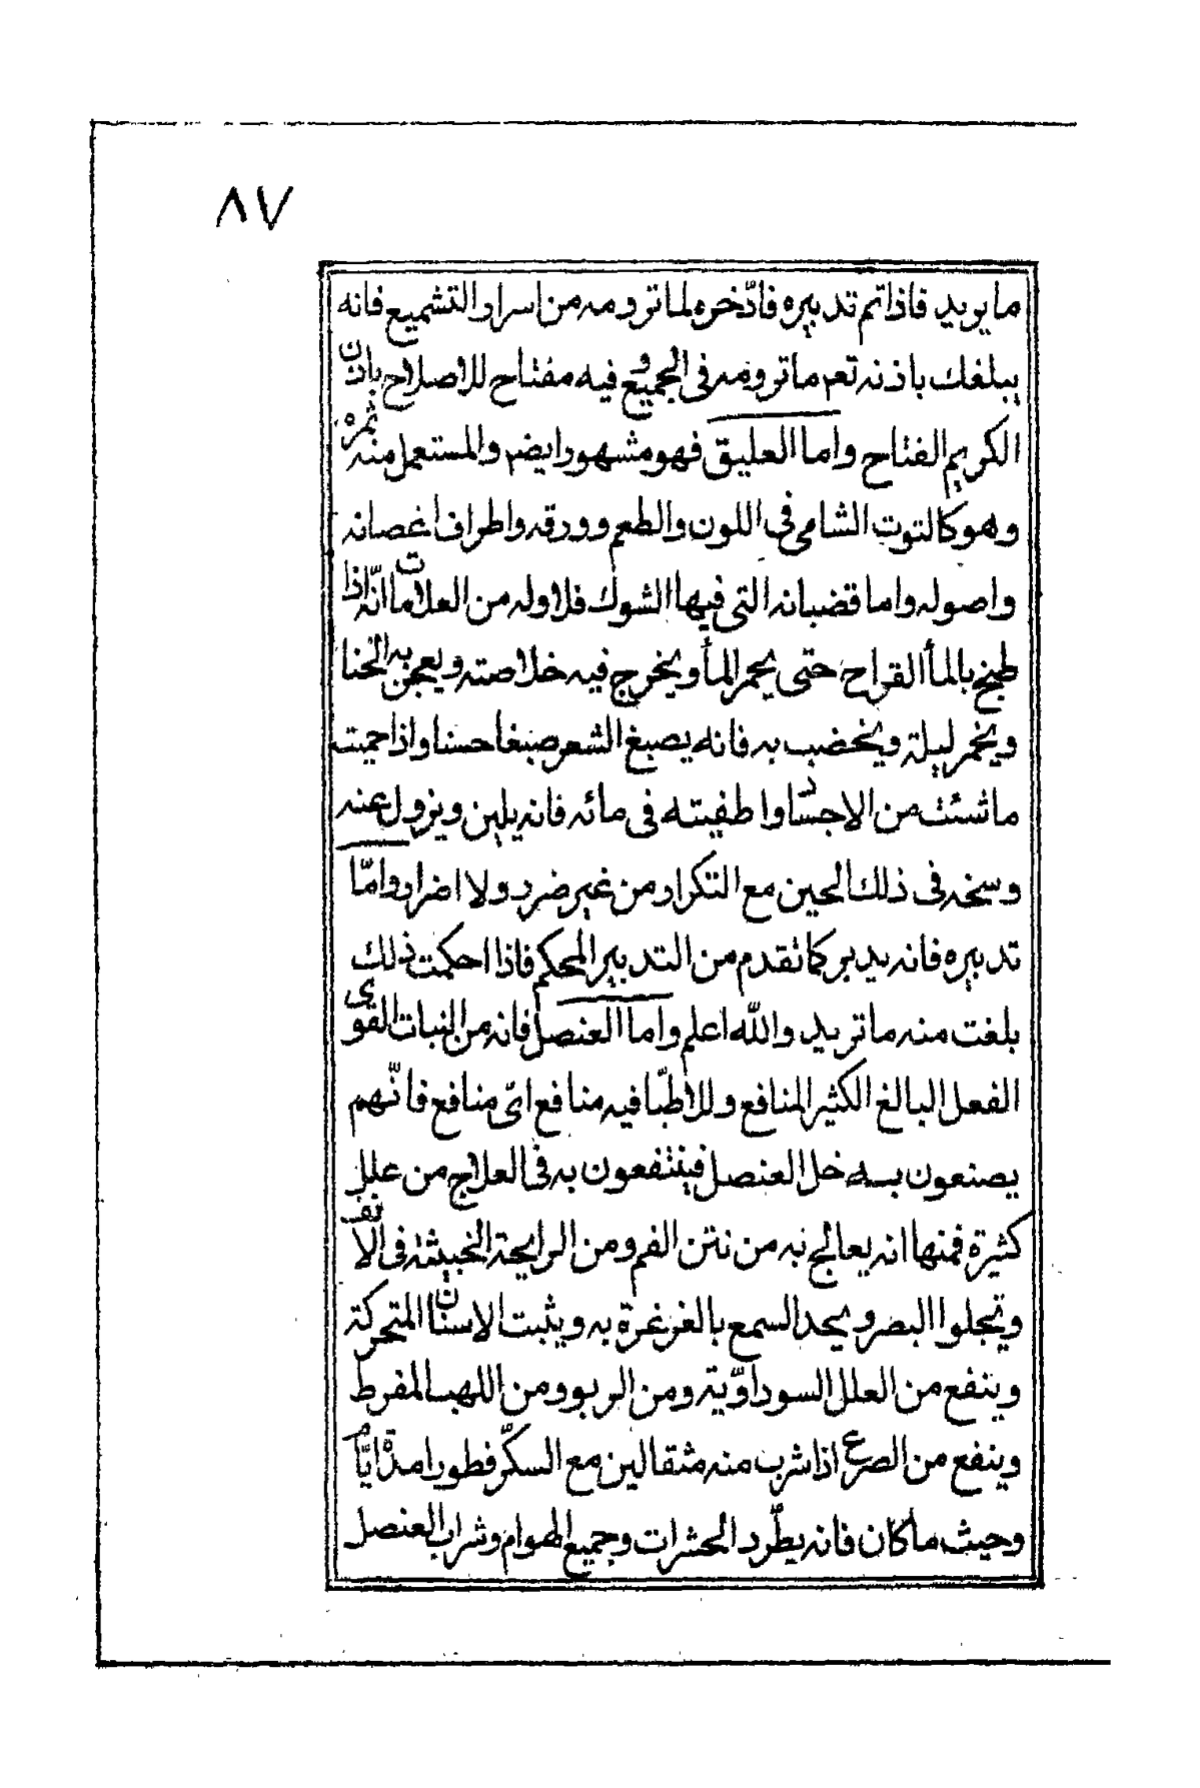 ٨٧
ما يريد فاذا تم تدبيره فادّخره لما ترومه من اسرار التشميع فانه
يبلغك باذنه تعم ما ترومه فى الجميع و فيه مفتاح للاصلاح باذن
الكريم الفتاح واما العليق فهو مشهور ايضم والمستعمل منه ثمره
وهو كالتوت الشامى فى اللون والطعم وورقه واطراف اغصانه
واصوله واما قضبانه التى فيها الشوك فلاوله من العلامات انّه اذا
طبخ بالمأ القراح حتى يحمر المأ ويخرج فيه خلاصته ويعجن به الحنا
ويخمر ليلة ويخضب به فانه يصبغ الشعر صبغا حسنا واذا حميت
ما شئت من الاجساد واطفيته فى مائه فانه يلين ويزول عنه
وسخه فى ذلك الحين مع التكرار من غير ضرر ولا اضرار وامّا
تدبيره فانه يدبر كما تقدم من التدبير المحكم فاذا احكمت ذلك
بلغت منه ما تريد والله اعلم واما العنصل فانه من النبات القوى
الفعل البالغ الكثير المنافع وللاطبّا فيه منافع اىّ منافع فانّهم
يصنعون به خل العنصل فينتفعون به فى العلاج من علل
كثيرة فمنها انه يعالج به من نتن الفم ومن الرايحة الخبيثة فى الانف
ويجلوا البصر ويحد السمع بالغرغرة به ويثبت الاسنان المتحركة
وينفع من العلل السوداوّية ومن الربو ومن اللهب المفرط
وينفع من الصرع اذا شرب منه مثقالين مع السكّر فطورا مدة ايّام
وحيث ما كان فانه يطّرد الحشرات وجميع الهوام وشراب العنصل